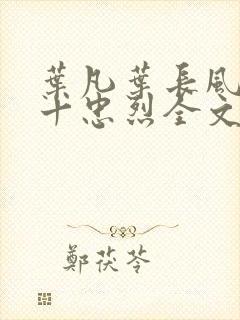 葉凡葉長風
十忠烈全文
鄭茯苓